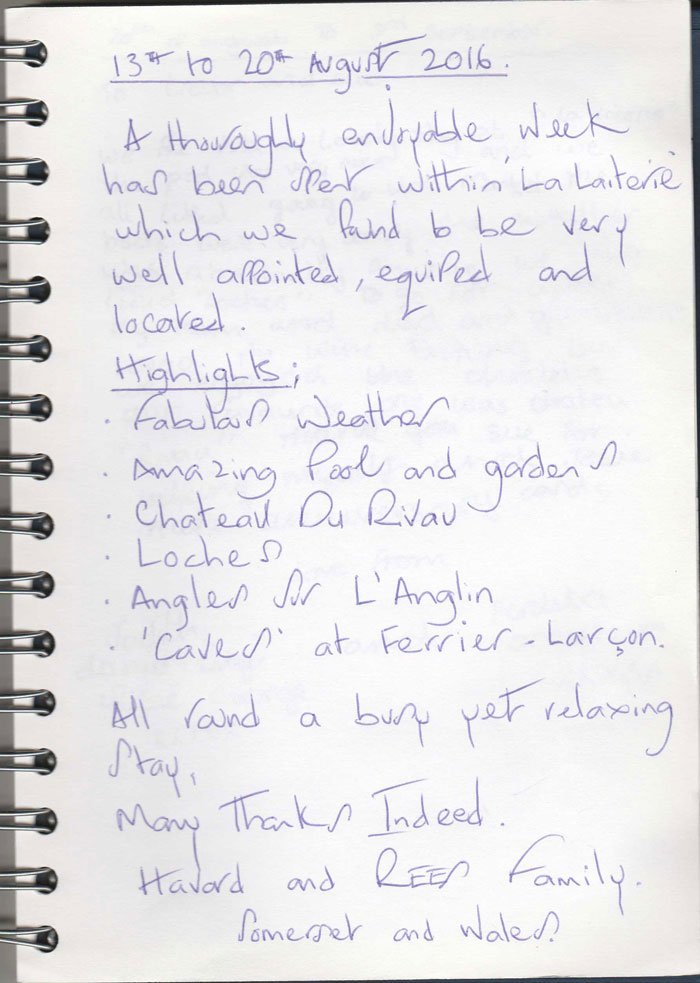 13TH to 20TH August 2016.
A thoroughly enjoyable week
has been spent within La Laiterie
which we found to be very
well appointed, equiped and
located.
Highlights;
· Fabulous Weather
· Amazing Pool and gardens
· Chateau Du Rivau
· Loches
· Angles Sur L'Anglin
· 'Caves' at Ferrier-Larçon.
All round a busy yet relaxing
stay,
Many Thanks Indeed.
Havard and REES Family.
Somerset and Wales.